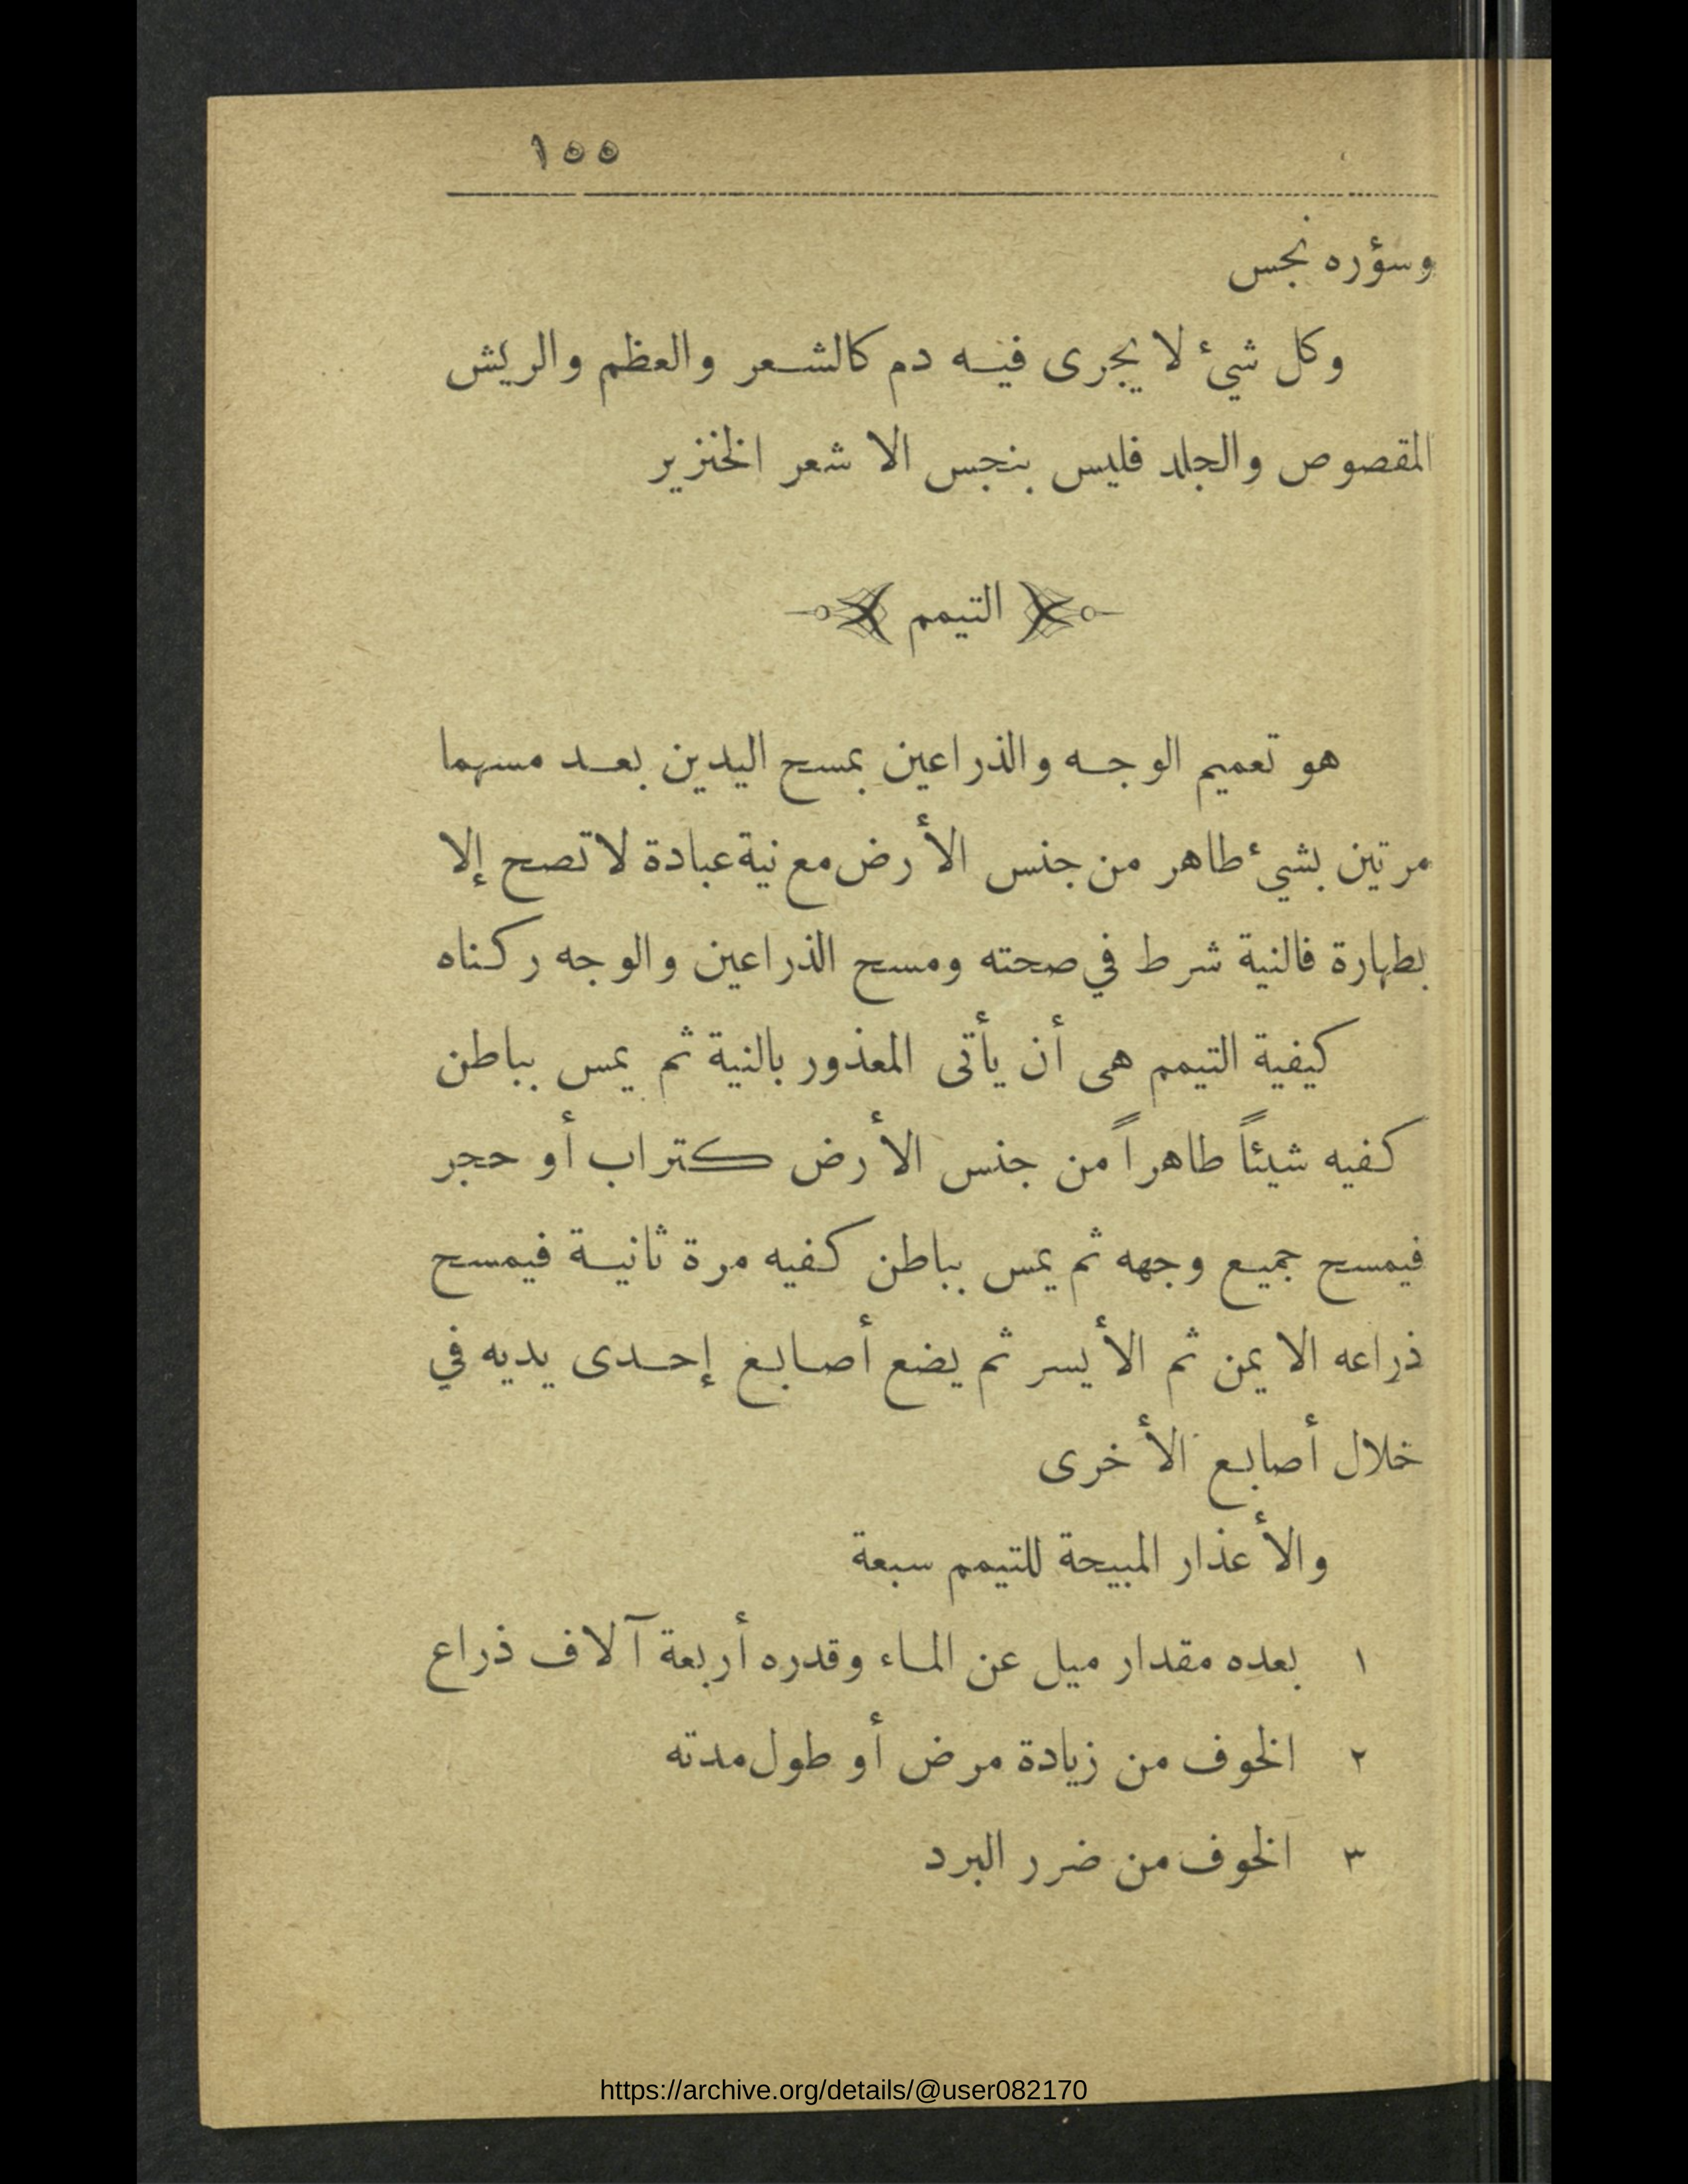 ١٥٥
وسؤره نجس
وكل شيء لا يجرى فيه دم كالشعر والعظم والريش
المقصوص والجلد فليس بنجس الا شعر الخنزير
التيمم
هو تعميم الوجه والذراعين بمسح اليدين بعد مسهما
مرتين بشيء طاهر من جنس الأرض مع نية عبادة لا تصح إلا
بطهارة فالنية شرط في صحته ومسح الذراعين والوجه ركناه
كيفية التيمم هى أن يأتى المعذور بالنية ثم يمس بباطن
كفيه شيئاً طاهراً من جنس الأرض كتراب أو حجر
فيمسح جميع وجهه ثم يمس بباطن كفيه مرة ثانية فيمسح
ذراعه الايمن ثم الأيسر ثم يضع أصابع إحدى يديه في
خلال أصابع الأخرى
والأعذار المبيحة للتيمم سبعة
١ بعده مقدار ميل عن الماء وقدره أربعة آلاف ذراع
٢ الخوف من زيادة مرض أو طول مدته
٣ الخوف من ضرر البرد
https://archive.org/details/@user082170